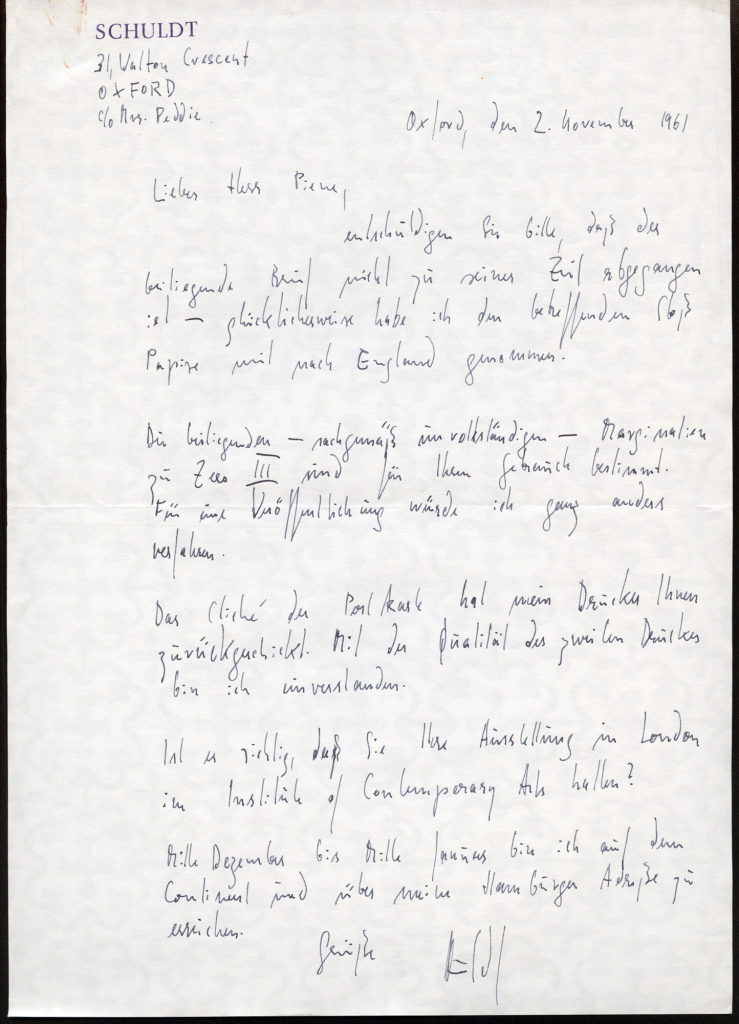 SCHULDT
31, Walton Crescent
OXFORD
c/o Mrs. Peddie.
Oxford, den 2. November 1961
Lieber Herr Piene,
entschuldigen Sie bitte, daß der
beiliegende Brief nicht zu seiner Zeit abgegangen
ist – glücklicherweise habe ich den betreffenden Stoß
Papiere mit nach England genommen.
Die beiliegenden – sachgemäß unvollständigen – Marginalien
zu Zero III sind für Ihren Gebrauch bestimmt.
Für eine Veröffentlichung würde ich ganz anders
verfahren.
Das Cliché der Postkarte hat mein Drucker Ihnen
zurückgeschickt. Mit der Qualität des zweiten Druckes
bin ich einverstanden.
Ist es richtig, daß Sie Ihre Ausstellung in London
im Institute of Contemporary Arts halten?
Mitte Dezember bis Mitte Januar bin ich auf dem
Continent und über meine Hamburger Adreße zu
erreichen.
Grüße